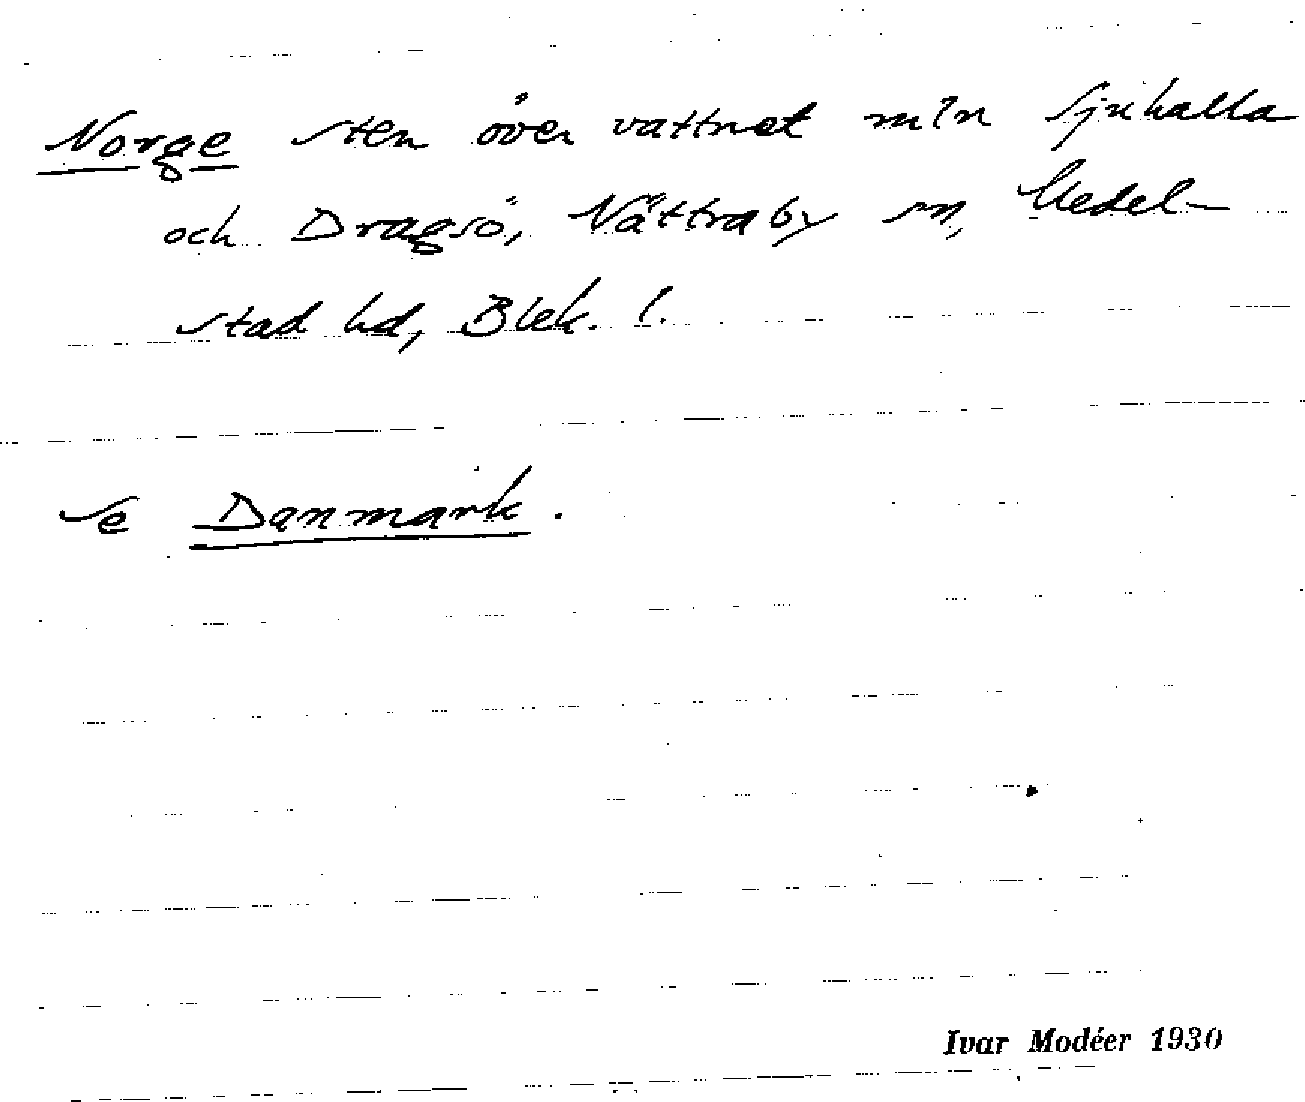 Norge sten över vattnet m/n Sjuhalla
och Dragsö, Nättraby sn, Medel-
stad hd, Blek. l.
Se Danmark.
Ivar Modéer 1930